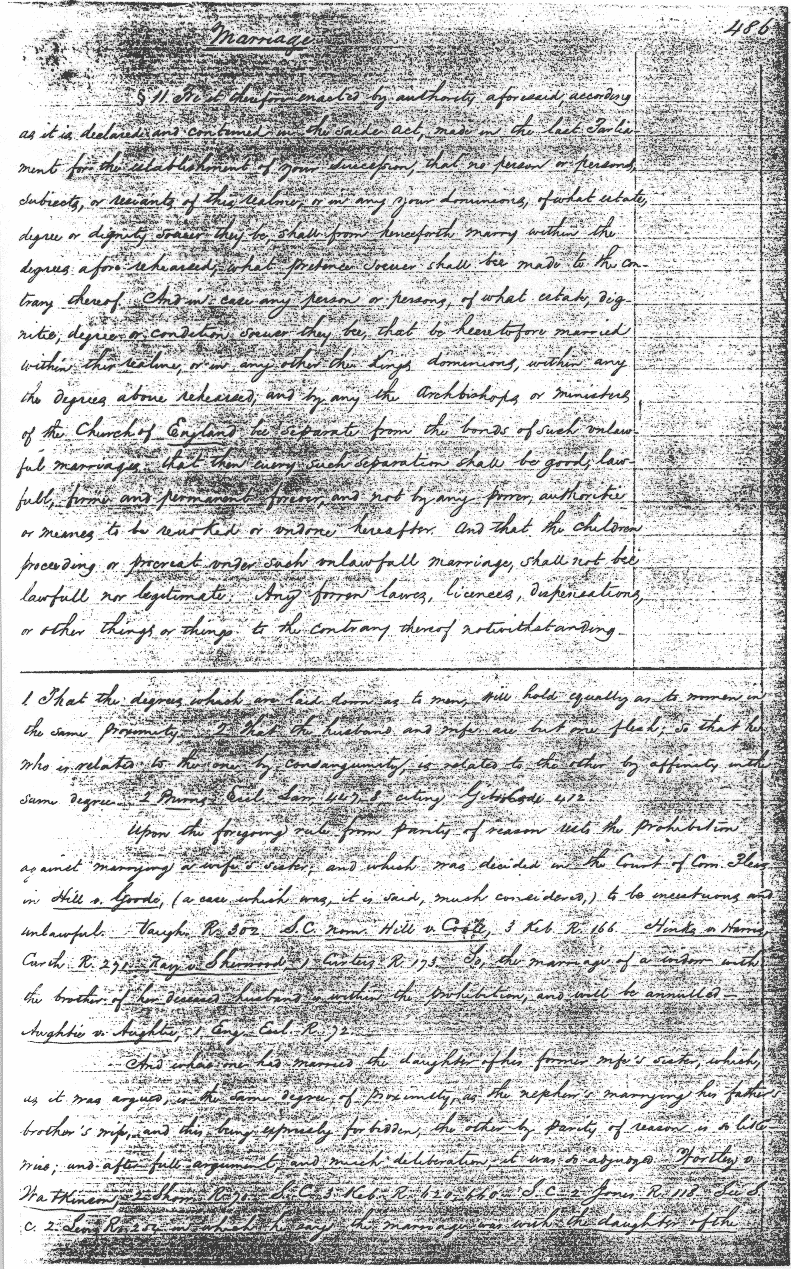 Marriage
486
§ 11. Be it therefore enacted by authority aforesaid, according
as it is declared and conteined in the saide act, made in the last Parlia-
ment for the establishment of your succession, that no person or persons,
subiects, or resiants of this realme, or in any your dominions, of what estate,
degree or dignity soeuer they be, shall from henceforth marry within the
degrees afore rehearsed, what pretence soeuer shall bee made to the con-
trary thereof. And in case any person or persons, of what estate, dig-
nitie, degree or condition soeuer they bee, that be heeretofore married
within this realme, or in any other the Kings dominions, within any
the degrees aboue rehearsed, and by any the Archbishops or ministers
of the Church of England be separate from the bonds of such vnlaw-
ful marriages, that then euery such separation shall be good, law-
full, firme and permanent forever, and not by any power, authoritie
or meanes to be reuoked or vndone hereafter. And that the children
proceeding or procreat vnder such vnlawfull marriage, shall not bee
lawfull nor legitimate. Any forren lawes, licences, dispensations,
or other things or things to the contrary thereof notwithstanding.
1. That the degrees which are laid down as to men, will hold equally as to women in
the same proximity. 2 That the husband and wife are but one flesh; so that he
who is related to the one by consanguinity, is related to the other by affinity in the
same degree. 2 Burns Eccl. Law 447. 8, citing Gibs. Cod. 412.
Upon the foregoing rule from parity of reason rests the prohibition
against marrying a wife's sister, and which was decided in the Court of Com. Pleas
in Hill v. Goode, (a case which was, it is said, much considered,) to be incestuous and
unlawful. Vaugh. R. 302 S. C. nom. Hill v. Coote, 3 Keb. R. 166 Hinks v Harris,
Carth. R. 271. Ray v Sherwood, 1 Curteis R. 173. So, the marriage of a widow with
the brother of her deceased husband is within the prohibition, and will be annulled—
Aughtie v. Aughtie, 1 Eng. Eccl. R. 72.
And where one had married the daughter of his former wife's sister, which,
as it was argued, is the same degree of proximity, as the nephew's marrying his father's
brother's wife, and this being expressly forbidden, the other by parity of reason is so like
wise; and after full argument, and much deliberation, it was so adjudged. Wortley v.
Watkinson, 2 Show. R. 70. S. C. 3 Keb. R. 620. 660 S. C. 2 Jones R. 118. See S.
C. 2 Lev. R. 254 in which he says the marriage was with the daughter of the